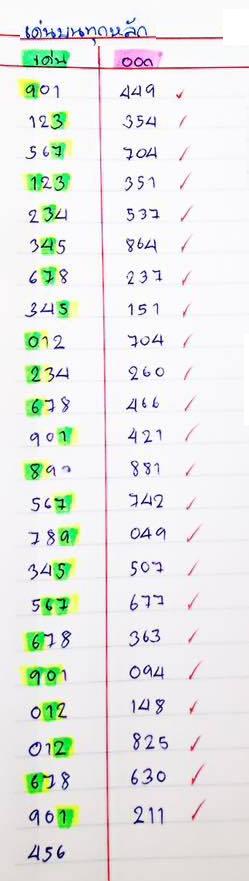 เด่นบนทุกหลัก
เด่น ออก
901 449 ✓
123 354 /
567 704 /
123 351 /
234 537 /
345 864 /
678 237 /
345 151 /
012 704 /
234 260 /
678 466 /
901 421 /
890 881 /
567 742 /
789 049 /
345 507 /
567 677 /
678 363 /
901 094 /
012 148 /
012 825 /
678 630 /
901 211 /
456